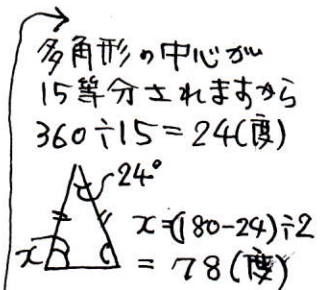 多角形の中心が
15等分されますから
360÷15=24(度)
24°
x=(180-24)÷2
x
=78(度)